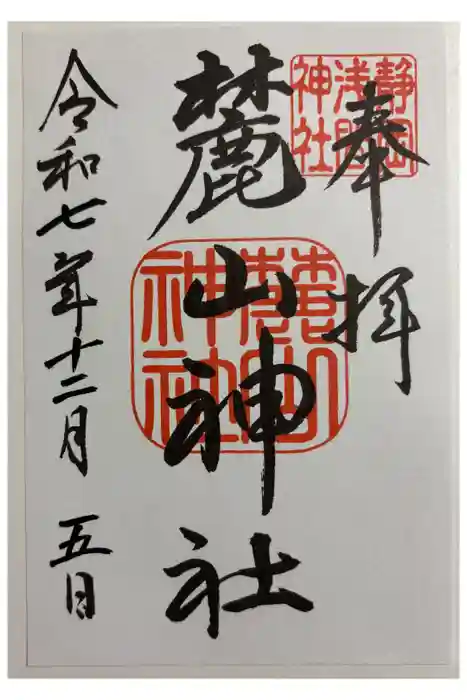 奉拝
静岡浅間神社
麓山神社
麓山神社
令和七年十二月 五日